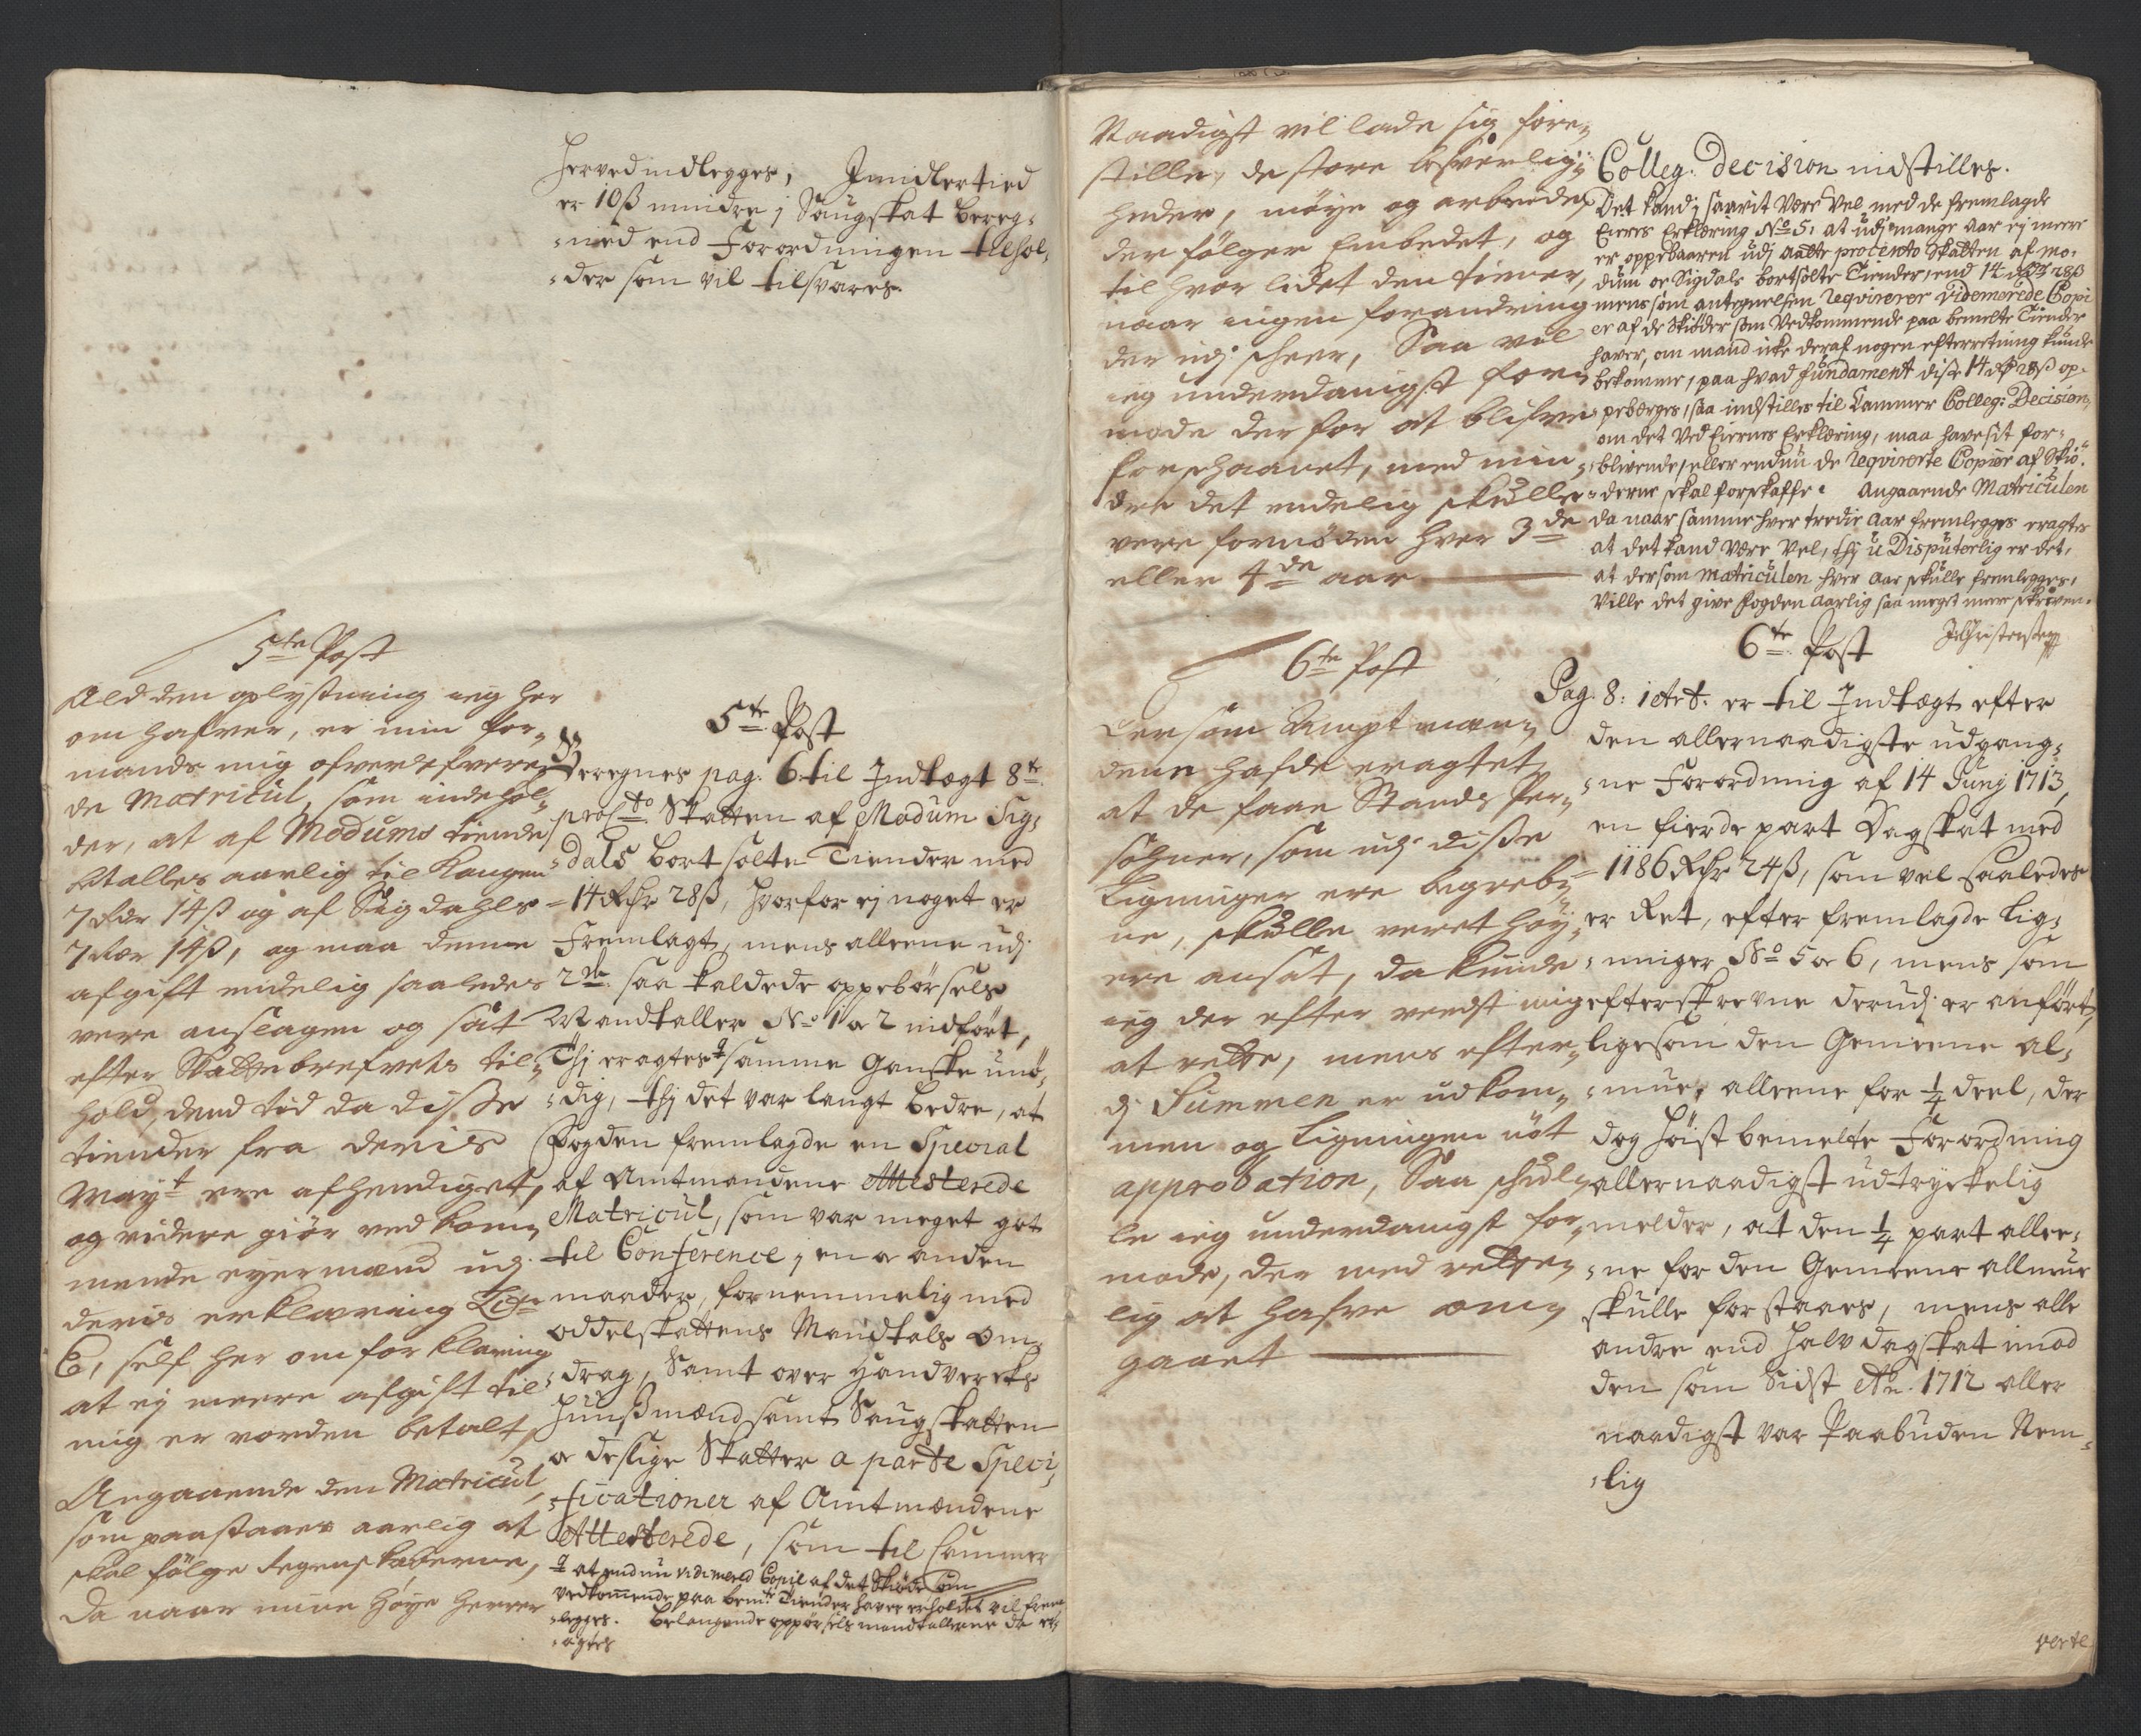 herved indlegges, Imidlertied
er 10ß mindre i Saugskat bereg-
-ned end Forordningen tilhol-
-der som vil tilsvares.
5te Post
Ald den oplysning ieg her
om hafver, er min for-
mands mig ofverlefvere-
de Matricul, som indehol-
der, at af Modums tiende
betalles aarlig til Kongen
7 Rdr 14ß og af Sigdahls
7 Rdr 14ß, og maa denne
afgift endelig saaledes
vere anslagen og sat
efter Skattebrefvets til-
hold, dend tid da disse
tiender fra deris
Mayt ere afhendiget,
og videre giør vedkom-
mende eyermænd udj
deris erklæring Litr
C, self her om forklaring
at ej meere afgift til
mig er vorden betalt,
Angaaende den Matricul,
som paastaaes aarlig at
skal følge Regenskaberne,
da naar mine høye herrer
5te Post
Beregnes pag. 6 til Indtægt 8te
procto Skatten af Modum Sig-
-dals bortsolte Tiender med
14 Rdr 28ß, hvorfor ej noget er
Fremlagt, mens alleene udj
2de saa kaldede oppebørsels
Mandtaller No 1 & 2 indført,
Thj eragtes samme Ganske unø-
-dig, thj det var langt bedre, at
Fogden fremlagde en Special
af Amtmandene Attesterede
Matricul, som var meget got
til Conference i en & anden
maader, fornemmelig med
oddelskattens Mandtals om-
-drag, Samt over Handvercks
Hussmænd samt Saugskatten
& deslige Skatter a parte Speci-
-ficationer af Amtmændene
Attesterede, som til Cammer
at endnu vidimered Copie af det Skiøde som
vedkommende paa bemte Tiender haver erholdet vil frem
-legges. Belangende oppørsels mandtallerne da er-
-agtes
Naadigst vil lade sig fore-
stille, de store besverlig-
heder, møye og arbeyde,
der følger Embedet, og
til hvor lidet den tiener,
naar ingen forandring
der udj scheer, Saa vil
ieg underdanigst for-
mode derfor at blifve
forschaanet, med min-
dre det endelig skulle
vere fornøden hver 3de
eller 4de aar
6te Post
Dersom Amptman-
den hafde eragtet
at de faae Stands Per-
sohner, som udj disse
Ligninger ere begreb-
ne, skulle veret høy-
ere ansat, da kunde
ieg der efter veedst mig
at rette, mens efter-
dj Summen er udkom-
men og Ligningen nøt
approbation, Saa schul-
le ieg underdanigst for-
mode, der med rette-
lig at hafve om-
gaaet
Colleg: Decision indstilles.
Det kand j saavit være vel med de fremlagde
Eieres Erklæring No 5, at udj mange Aar ej meere
er oppebaaren udj aatte procento Skatten af Mo-
dum & Sigdals bortsolte Tiender, end 14 Rdr 28ß
mens som antegnelsen Reqvirerer Videmerede Copi
er af de Skiøder som Vedkommende paa bemelte Tiender
haver, om mand icke deraf nogen efterretning kunde
bekomme, paa hvad fundament disse 14 Rdr 28ß op-
peberges, saa indstilles til Cammer Colleg: Decision,
om det Ved Eiernes Erklæring, maa have sit for-
-blivende, eller endnu de Reqvirerte Copier af Skiø-
-derne skal forskaffe. Angaaende Matriculen
da naar samme hver tredie Aar fremlegges eragtes
at det kand være Vel, thj u Disputerlig er det,
at dersom Matriculen hver Aar skulle fremlegges,
Ville det give fogden Aarlig saa meget mere skriven.
6te Post
Pag. 8: i Art. er til Indtægt efter
den allernaadigste udgang-
-ne Forordning af 14 Junj 1713,
en fierde part Dagskat med
1186 Rdr 24ß, som vel saaledes
er Ret, efter fremlagde Lig-
-ninger No 5 & 6, mens som
efterskrevne derudj er anført,
ligesom den Gemeene al-
-mue, alleene for 1/4 deel, der
dog høist bemelte Forordning
allernaadigst udtryckelig
melder, at den 1/4 part allee-
-ne for den Gemeene allmue
skulle forstaaes, mens alle
andre end halv dagskat imod
den som Sidst Ao. 1712 aller
naadigst var Paabuden Nem-
-lig
verte